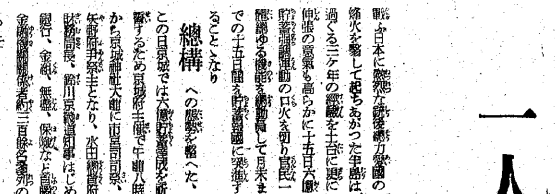 一人
戰ふ日本に熾烈な貯蓄總力愛國の
烽火を擧して起ちあがつた半島は
過ぐる三ケ年の經驗を土台に更に
伸張の意氣も高らかに十五日六億
貯蓄強調運動の口火を切り官民一
あらゆる機能を總動員して月末ま
での十五日間を貯蓄報國に突進す
ることとなり
總構 への態勢を整へた、
この日京城では六億貯蓄達成を祈
誓するため京城府主催で午前八時
から京城神社大前に市宮司司祭、
矢野府尹祭主となり、水田總督府
財務局長、鈴川京畿道知事はじめ
銀行、金組、無盡、保險など
金融機關關係者約三百餘名參列の